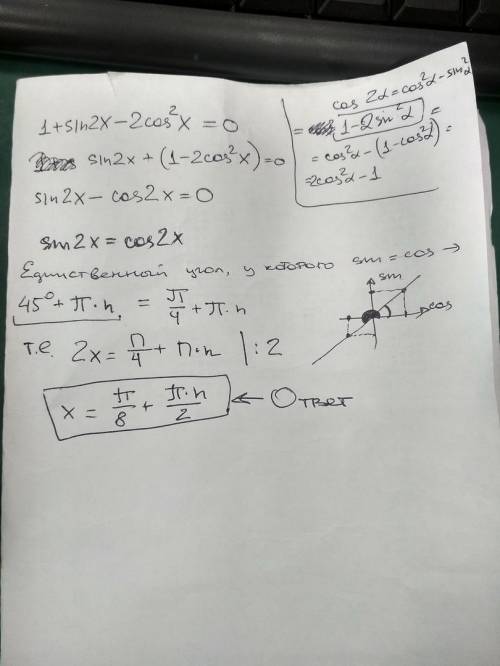 1+sin2x-2cos²x = 0
sin2x + (1-2cos²x)=0
sin2x - cos2x = 0
sin2x = cos2x
cos 2α = cos²α - sin²α
= 1-2sin²α =
= cos²α - (1-cos²α) =
=2cos²α - 1
Единственный угол, у которого sin = cos →
45° + π·n = π/4 + π·n
sin
cos
т.е. 2x = π/4 + π·n |:2
x = π/8 + π·n/2 ← Ответ